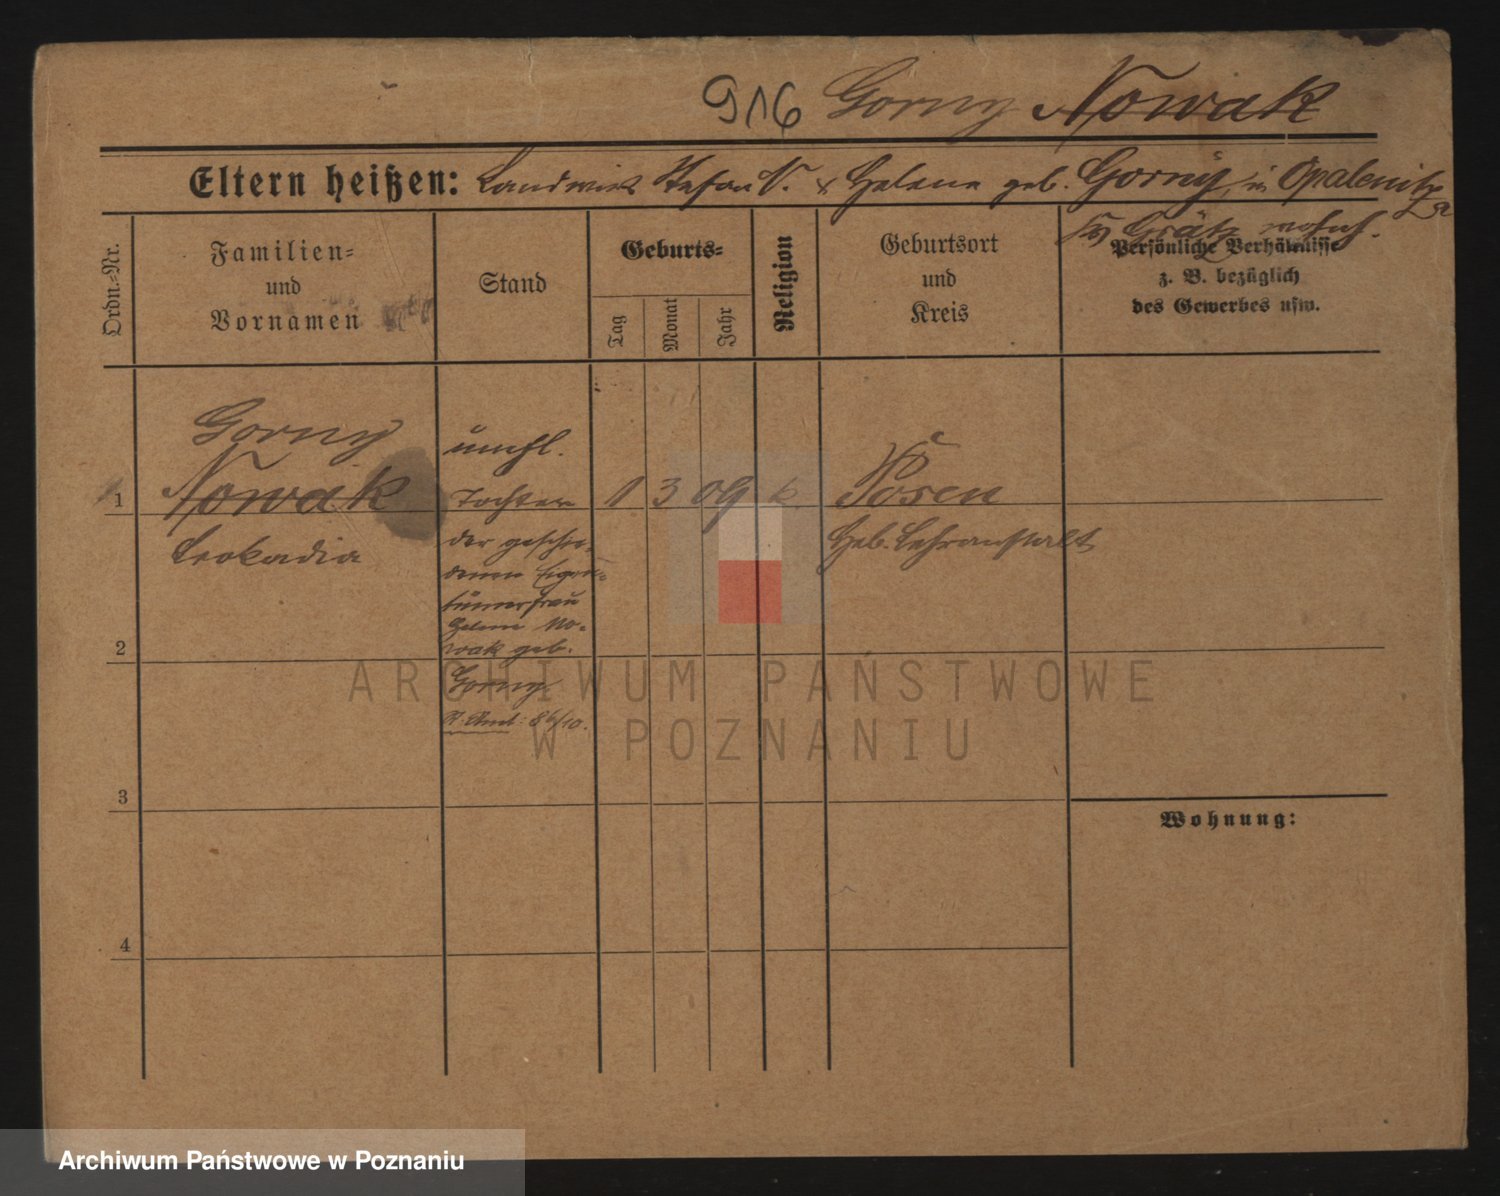 916 Gorny Nowak
Eltern heißen: Landwirt Stefan N. & Helene geb. Gorny, in Opalenitza
Kr. Grätz wohnh.
Ordn.-Nr.
Familien-
und
Vornamen
Stand
Geburts-
Tag
Monat
Jahr
Religion
Geburtsort
und
Kreis
Persönliche Verhältnisse
z. B. bezüglich
des Gewerbes usw.
Gorny
unehl.
1 Nowak Tochter 1 3 09 k. Posen
Leokadia
der geschie-
denen Eigen-
tümerfrau
Helene No-
wak geb.
Gorny
Heb. Lehranstalt
2
3
4
Wohnung:
ARCHIWUM PAŃSTWOWE
W POZNANIU
Archiwum Państwowe w Poznaniu